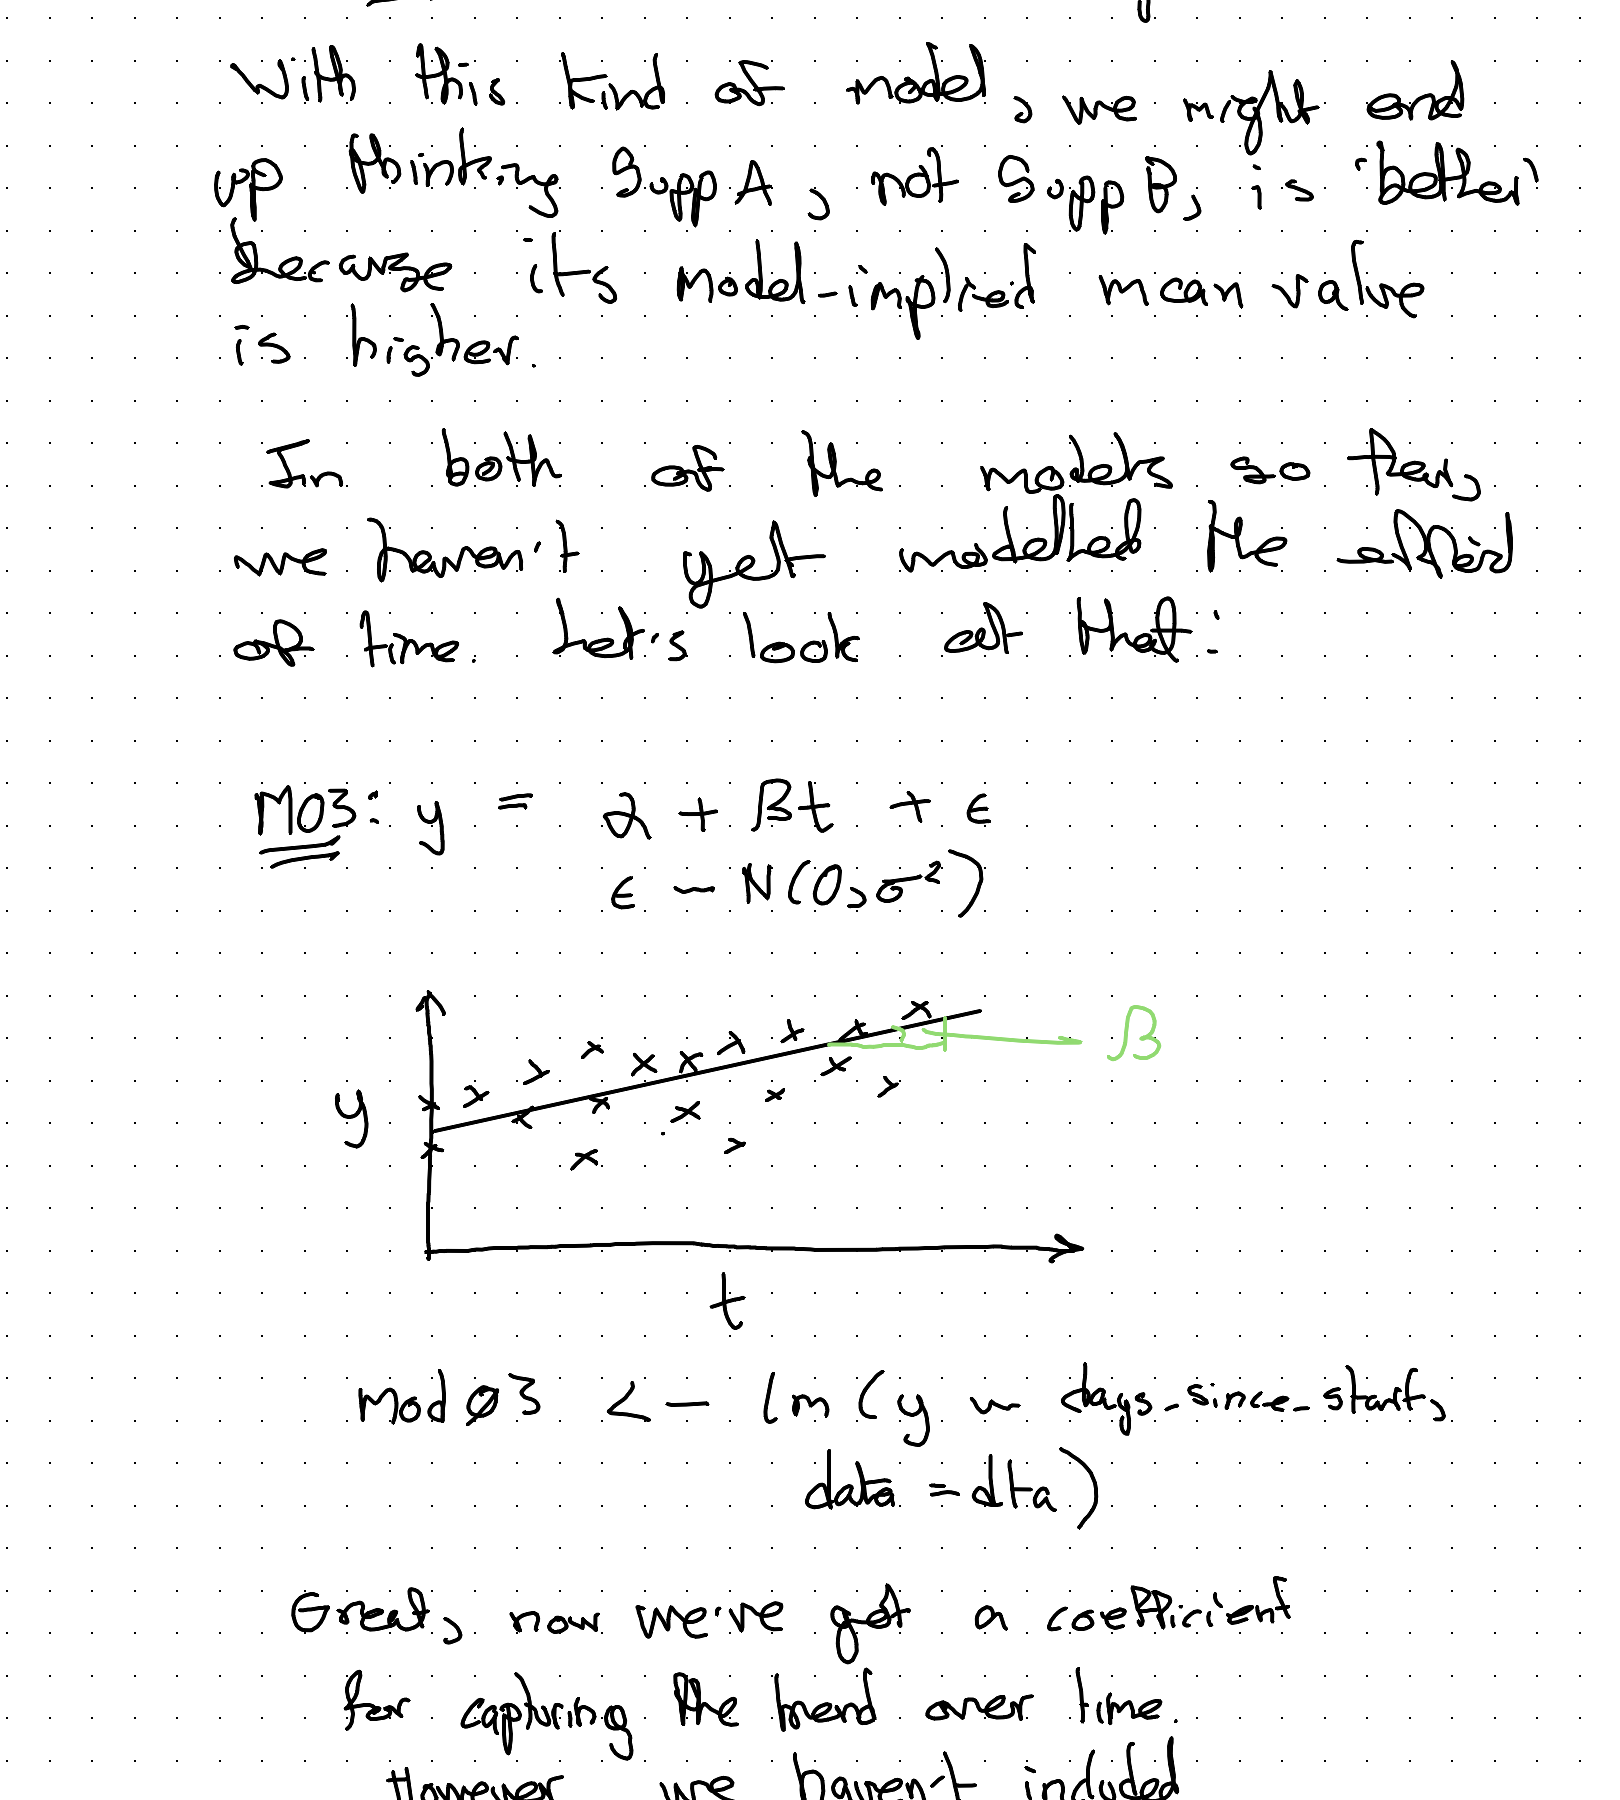 With this kind of model, we might end
up thinking SuppA, not SuppB, is 'better'
because its model-implied mean value
is higher.
In both of the models so far,
we haven't yet modelled the effect
of time. Let's look at that:
M03: y = α + βt + ϵ
ϵ ~ N(0, σ²)
β
y
t
mod03 <- lm(y ~ days_since_start,
data = dta)
Great, now we've got a coefficient
for capturing the trend over time.
However we haven't included